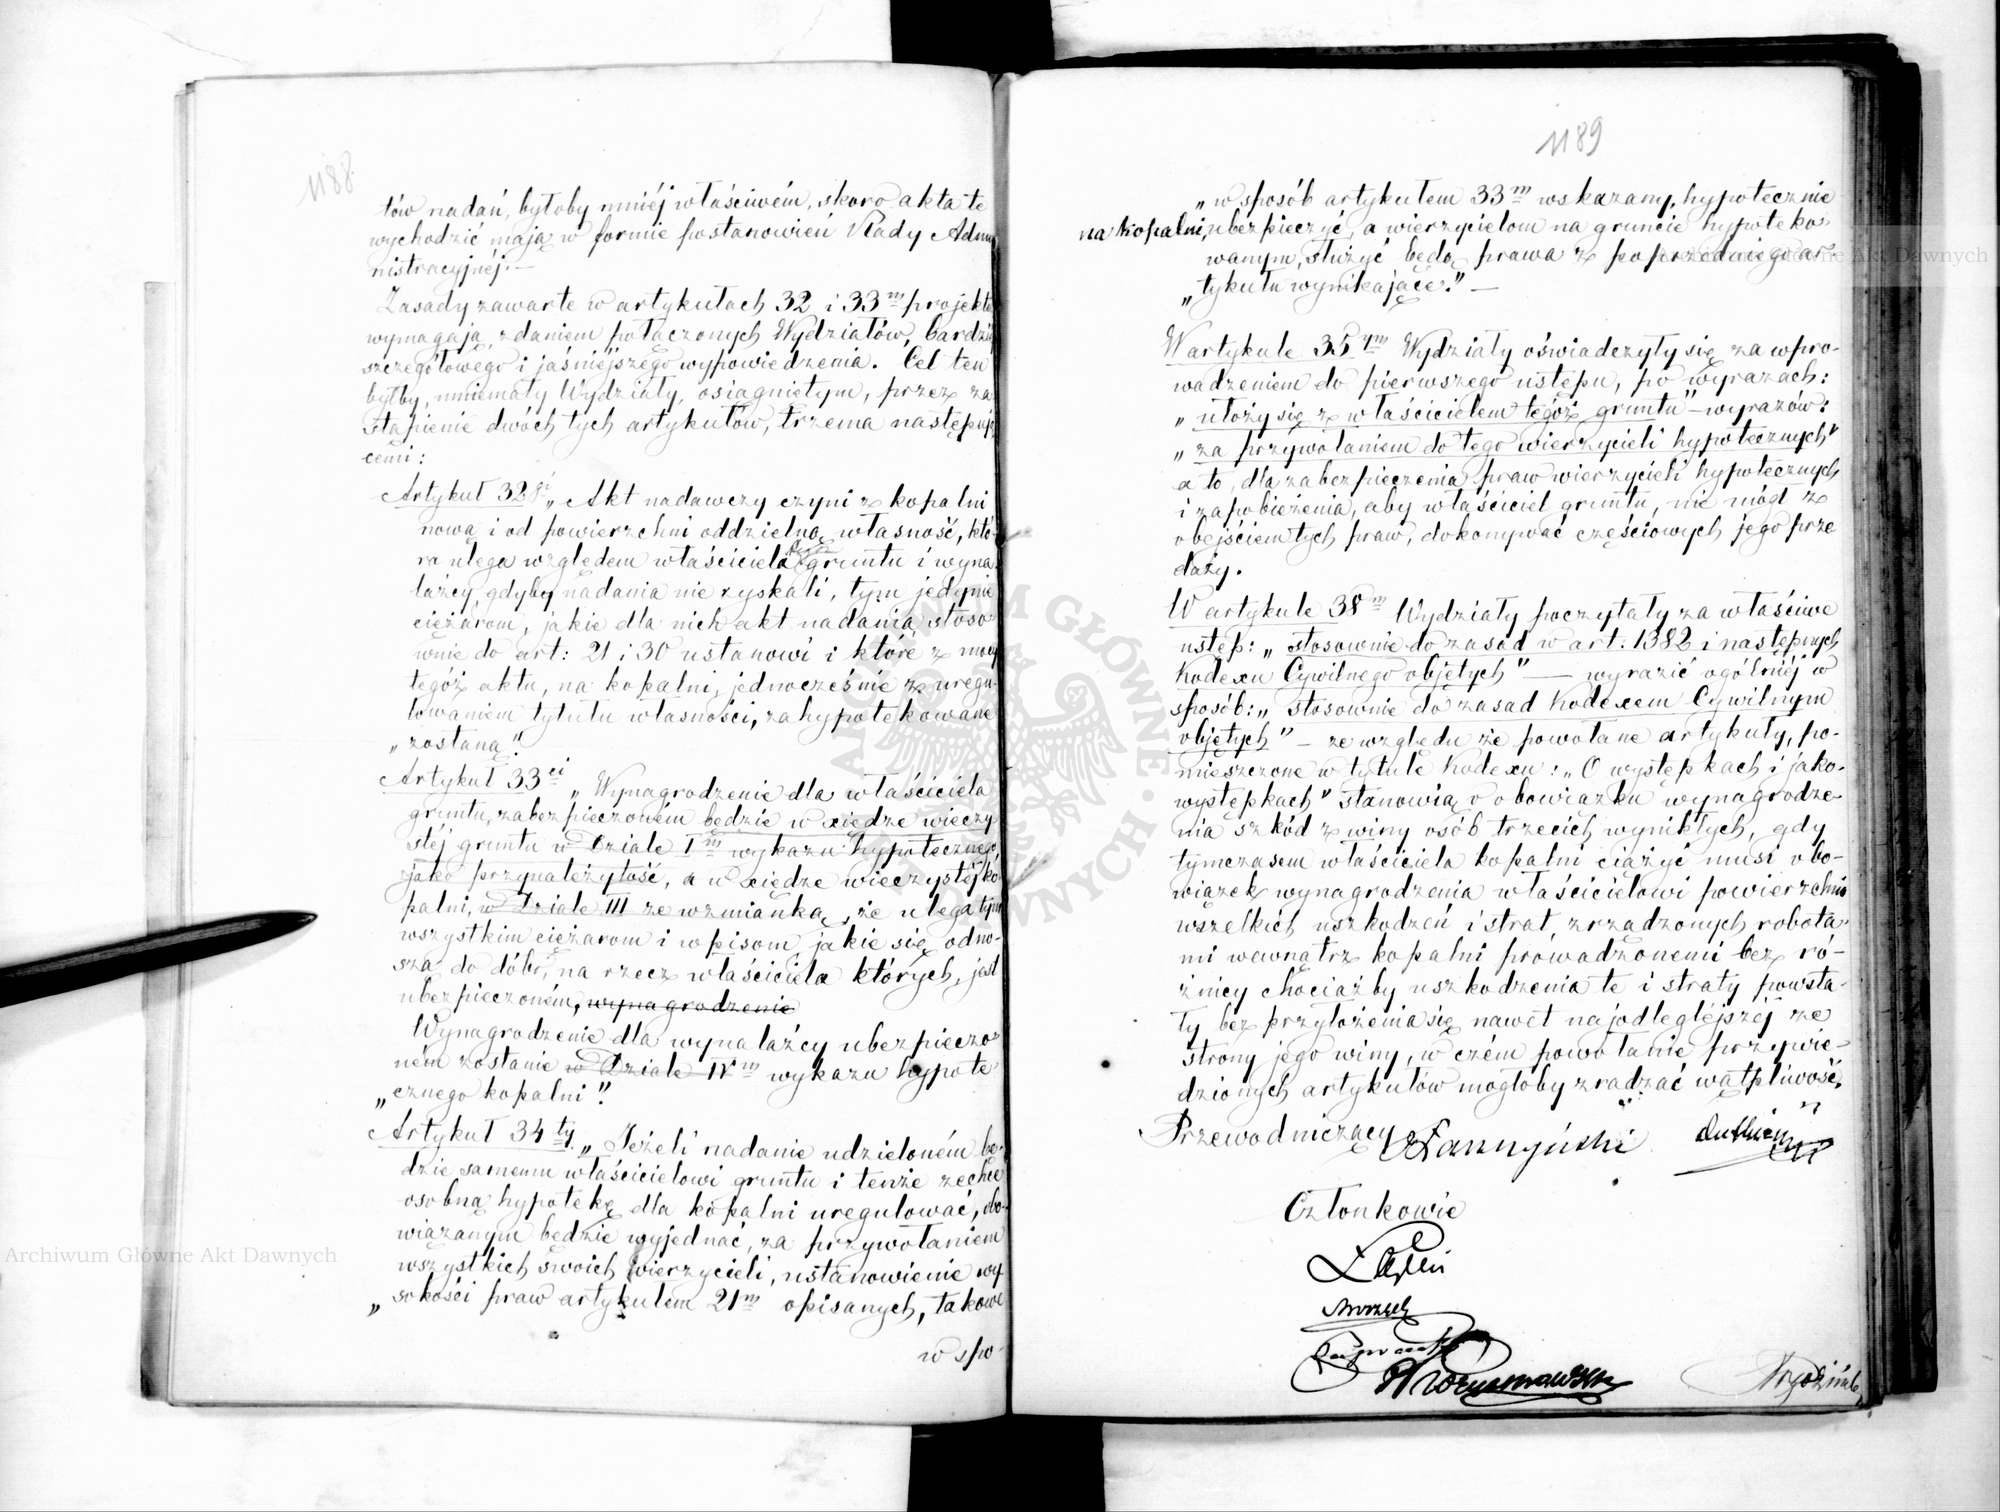 1188
tów nadań, byłoby mniéj właściwém, skoro akta te
wychodzić mają w formie postanowień Rady Admi
nistracyjnéj. —
Zasady zawarte w artykułach 32 i 33m projektu
wymagają, zdaniem połączonych Wydziałów, bardziéj
szczegółowego i jaśniejszego wypowiedzenia. Cel ten
byłby, mniemały Wydziały, osiągniętym, przez za
stąpienie dwóch tych artykułów, trzema następują
cemi:
Artykuł 32gi „Akt nadawczy czyni z kopalni
nową i od powierzchni oddzielną własność, któ-
ra ulega względem właściciela gruntu i wyna
lazcy, gdyby nadania nie zyskali, tym jedynie
ciężarom, jakie dla nich akt nadania stoso
wnie do art: 21 i 30 ustanowi i które z mocy
tegóż aktu, na kopalni, jednocześnie z uregu-
lowaniem tytułu własności, zahypotekowane
„zostaną".
Artykuł 33ci „Wynagrodzenie dla właściciela
gruntu, zabezpieczoném będzie w xiędze wieczy
stéj gruntu w Dziale Im wykazu hypotecznego,
jako przynależytość, a w xiędze wieczystéj ko
palni, w Dziale III ze wzmianką, że ulega tym
wszystkim ciężarom i wpisom jakie się odno-
szą do dóbr, na rzecz właściciela których, jest
ubezpieczoném, wynagrodzenie
Wynagrodzenie dla wynalazcy ubezpieczo
ném zostanie w Dziale IVm wykazu hypote
„cznego kopalni".
Artykuł 34ty „Jeżeli nadanie udzieloném bę-
dzie samemu właścicielowi gruntu i tenże zechce
osobną hypotekę dla kopalni uregulować, obo-
wiązanym będzie wyjednać, za przywołaniem
wszystkich swoich wierzycieli, ustanowienie wy
„sokości praw artykułem 21m opisanych, takowe
w spo-
1189
„w sposób artykułem 33m wskazany, hypotecznie
na kopalni, ubezpieczyć, a wierzycielom na gruncie hypoteko
wanym, służyć będą prawa z poprzedniego ar-
„tykułu wynikające." —
W artykule 35tym Wydziały oświadczyły się za wpro-
wadzeniem do pierwszego ustępu, po wyrazach:
„ułoży się z właścicielem tegóż gruntu" — wyrazów:
„za przywołaniem do tego wierzycieli hypotecznych"
a to, dla zabezpieczenia praw wierzycieli hypotecznych
i zapobieżenia, aby właściciel gruntu, nie mógł z
obejściem tych praw, dokonywać częściowych jego prze
daży.
W artykule 38m Wydziały poczytały za właściwe
ustęp: „stosownie do zasad w art: 1382 i następnych
Kodexu Cywilnego objętych" — wyrazić ogólniéj w
sposób: „stosownie do zasad Kodexem Cywilnym
objętych" — ze względu że powołane artykuły, po-
mieszczone w tytule Kodexu: „O występkach i jako-
występkach" stanowią o obowiązku wynagrodze
nia szkód z winy osób trzecich wynikłych, gdy
tymczasem właściciela kopalni ciążyć musi obo-
wiązek wynagrodzenia właścicielowi powierzchni
wszelkich uszkodzeń i strat, zrządzonych robota-
mi wewnątrz kopalni prowadzonemi bez ró-
żnicy chociażby uszkodzenia te i straty powsta-
ły bez przyłożenia się nawet najodległéjszéj ze
strony jego winy, w czém powołanie przywie-
dzionych artykułów mogłoby zradzać wątpliwość.
Przewodniczący
Członkowie
Archiwum Główne Akt Dawnych
Archiwum Główne Akt Dawnych
ARCHIWUM GŁÓWNE AKT DAWNYCH